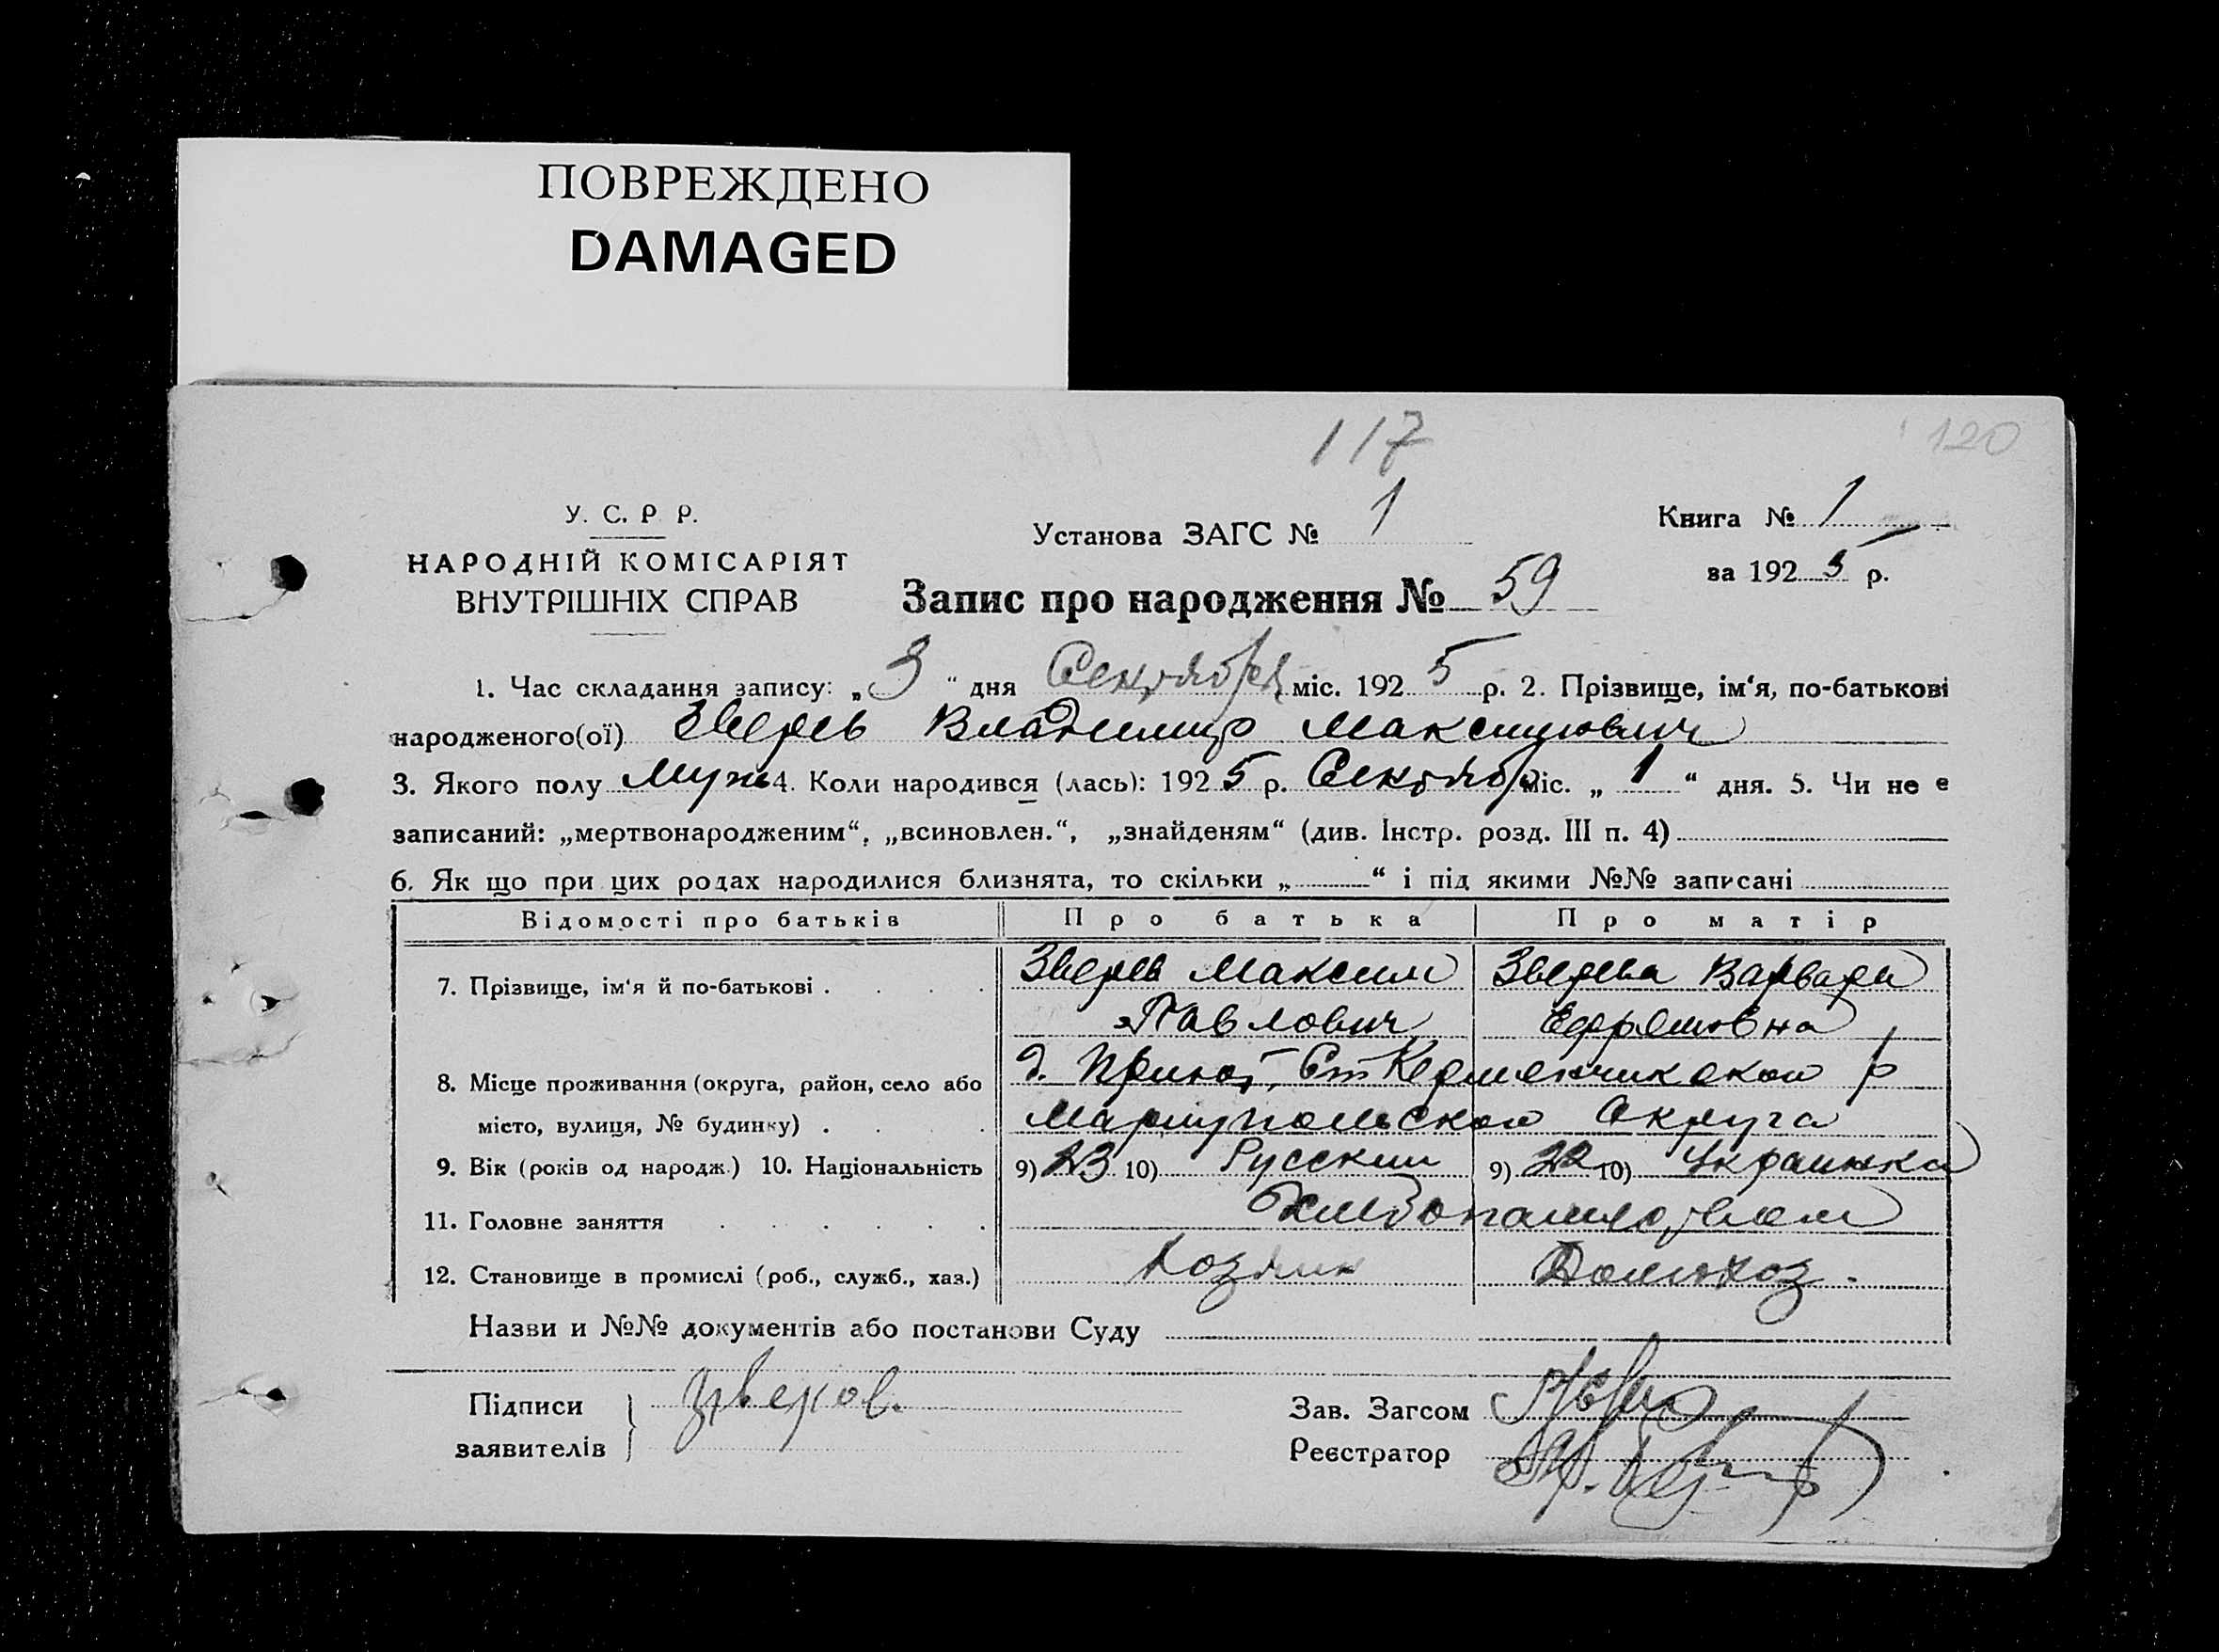 ПОВРЕЖДЕНО
DAMAGED
117
120
У. С. Р. Р.
НАРОДНІЙ КОМІСАРІЯТ
ВНУТРІШНІХ СПРАВ
Установа ЗАГС № 1
Книга № 1
за 1925 р.
Запис про народження № 59
1. Час складання запису: „3“ дня Сентября міс. 1925 р. 2. Прізвище, ім‘я, по-батькові
народженого(ої) Зверев Владимир Максимович
3. Якого полу Муж 4. Коли народився (лась): 1925 р. Сентябр міс. „1“ дня. 5. Чи не е
записаний: „мертвонародженим“, „всиновлен.“, „знайденям“ (див. Інстр. розд. III п. 4)
6. Як що при цих родах народилися близнята, то скільки „ “ і під якими №№ записані
Відомості про батьків Про батька Про матір
7. Прізвище, ім‘я й по-батькові . Зверев Максим Зверева Варвара
Павлович Ефремовна
8. Місце проживання (округа, район, село або д. Приют, Ст Керменчикской р
місто, вулиця, № будинку) . Мариупольской Округа
9. Вік (років од народж.) 10. Національність 9) 23 10) Русский 9) 22 10) Украинка
11. Головне заняття Хлебопашеством
12. Становище в промислі (роб., служб., хаз.) Хозяин Домохоз.
Назви и №№ документів або постанови Суду
Підписи
заявителів
Зав. Загсом
Реєстратор